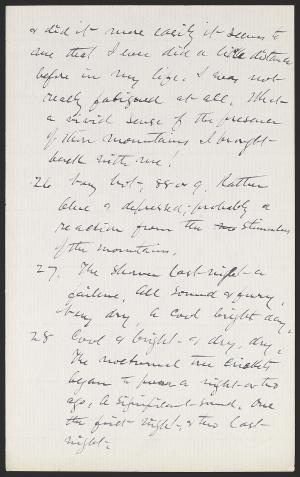 & did it more easily it seems to
me that I ever did a like distance
before in my life. I was not
really fatigued at all. What
a vivid sense of the presence
of those mountains I brought
back with me!
26 Very hot, 88 or 9. Rather
blue & depressed; probably a
reaction from the stimulus
of the mountains.
27. The shower last night a
failure. All sound & fury.
Very dry, a cool bright day.
28 Cool & bright & dry, dry.
The nocturnal tree crickets
began to purr a night or two
ago, a significant sound. One
the first night, & two last
night.